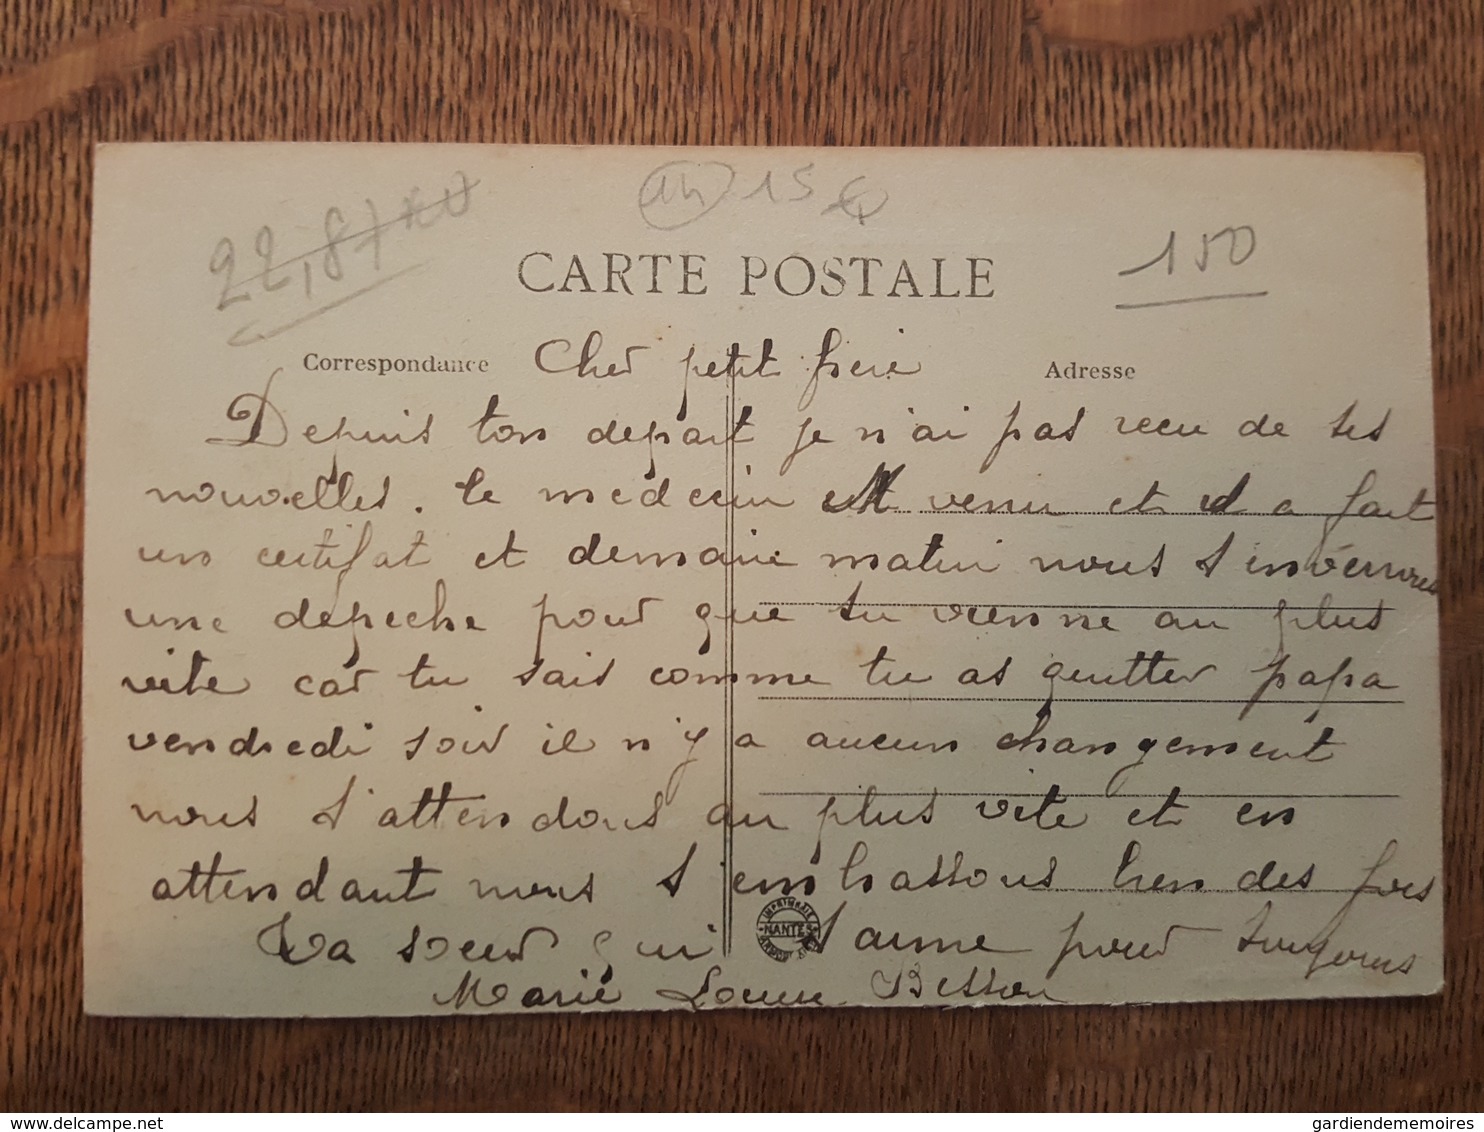 22,87
14 15 €
150
CARTE POSTALE
Correspondance
Adresse
Cher petit frere
Depuis ton depart je n'ai pas recu de tes
nouvelles. le medecin est venu et il a fait
un certifat et demain matin nous t'inverrons
une depeche pour que tu vienne au plus
vite car tu sais comme tu as quitter papa
vendredi soir il n'y a aucun changement
nous t'attendons au plus vite et en
attendant nous t'embrassons bien des fois
Ta soeur qui t'aime pour toujours
Marie Louise Besson
IMPRIMERIE
NANTES
delcampe.net
gardiendememoires